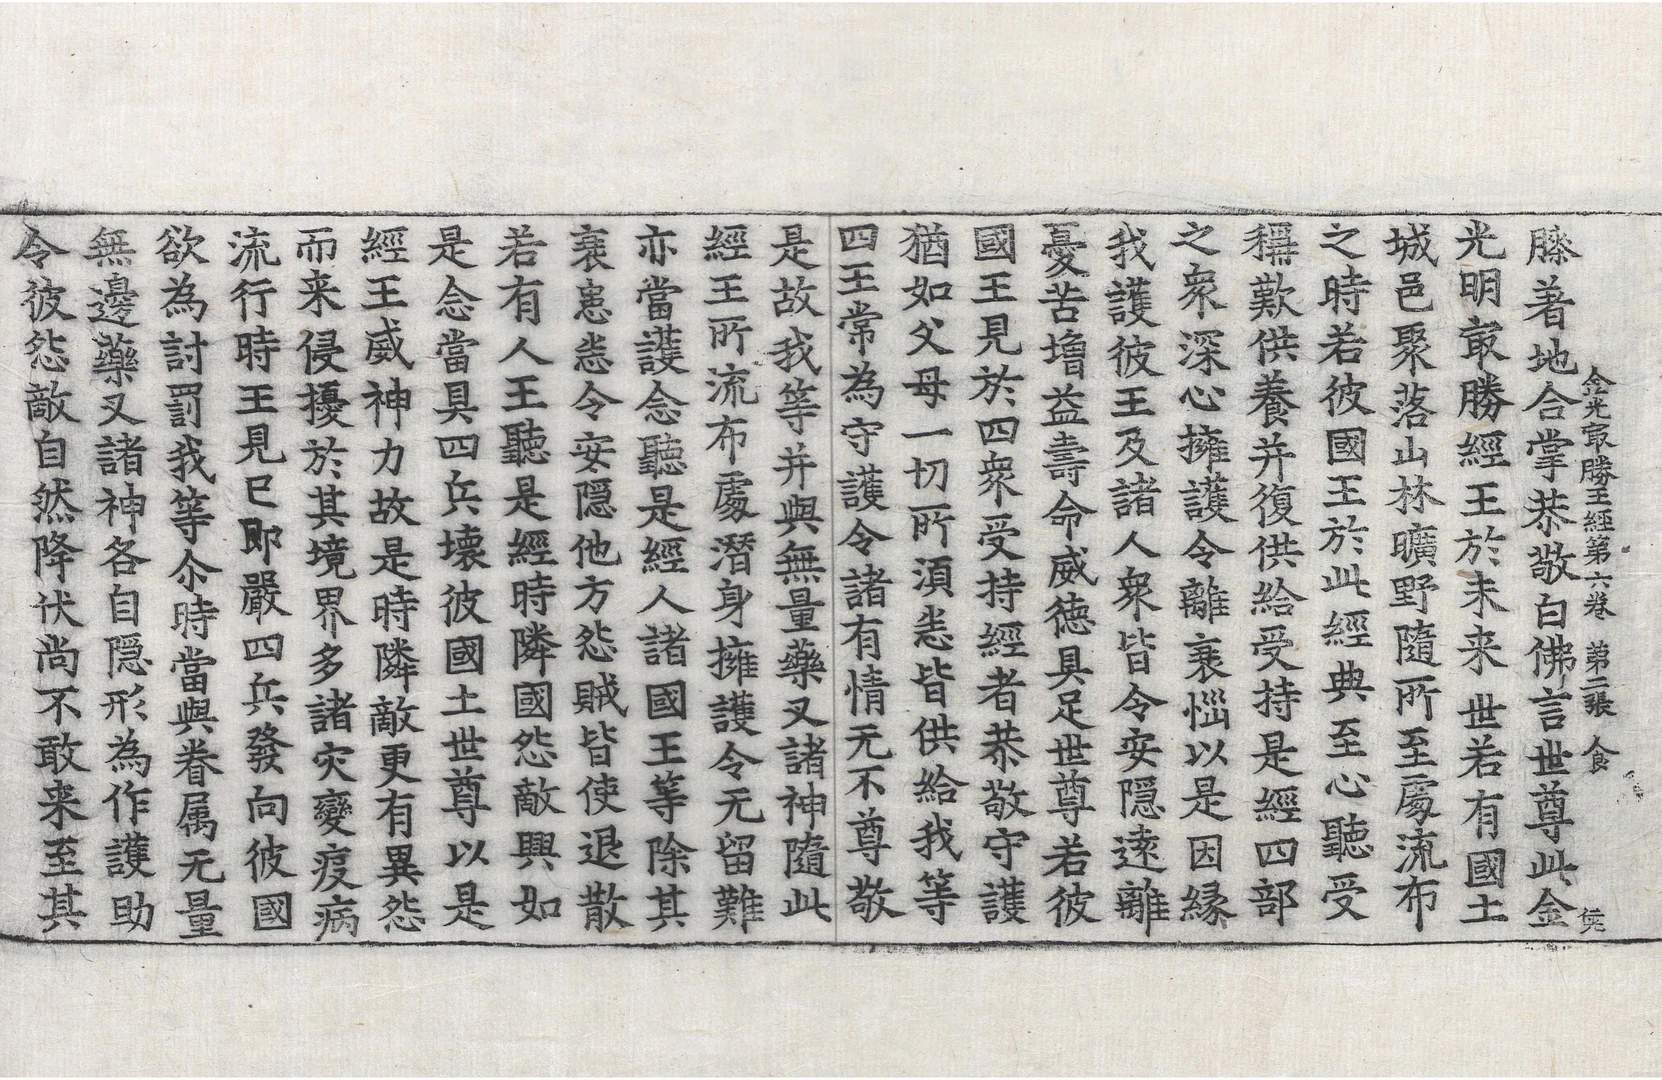 金光㝡勝王經第六卷 第二張 食
膝著地合掌恭敬白佛言世尊此金
光明㝡勝經王於未来世若有國土
城邑聚落山林曠野隨所至處流布
之時若彼國王於此經典至心聽受
稱歎供養并復供給受持是經四部
之衆深心擁護令離衰惱以是因緣
我護彼王及諸人衆皆令安隱遠離
憂苦增益壽命威德具足世尊若彼
國王見於四衆受持經者恭敬守護
猶如父母一切所須悉皆供給我等
四王常為守護令諸有情无不尊敬
是故我等并與無量藥叉諸神隨此
經王所流布處潛身擁護令无留難
亦當護念聽是經人諸國王等除其
衰患悉令安隱他方怨賊皆使退散
若有人王聽是經時隣國怨敵興如
是念當具四兵壞彼國土世尊以是
經王威神力故是時隣敵更有異怨
而来侵擾於其境界多諸灾變疫病
流行時王見已即嚴四兵發向彼國
欲為討罰我等尒時當與眷属无量
無邊藥叉諸神各自隱形為作護助
令彼怨敵自然降伏尚不敢来至其